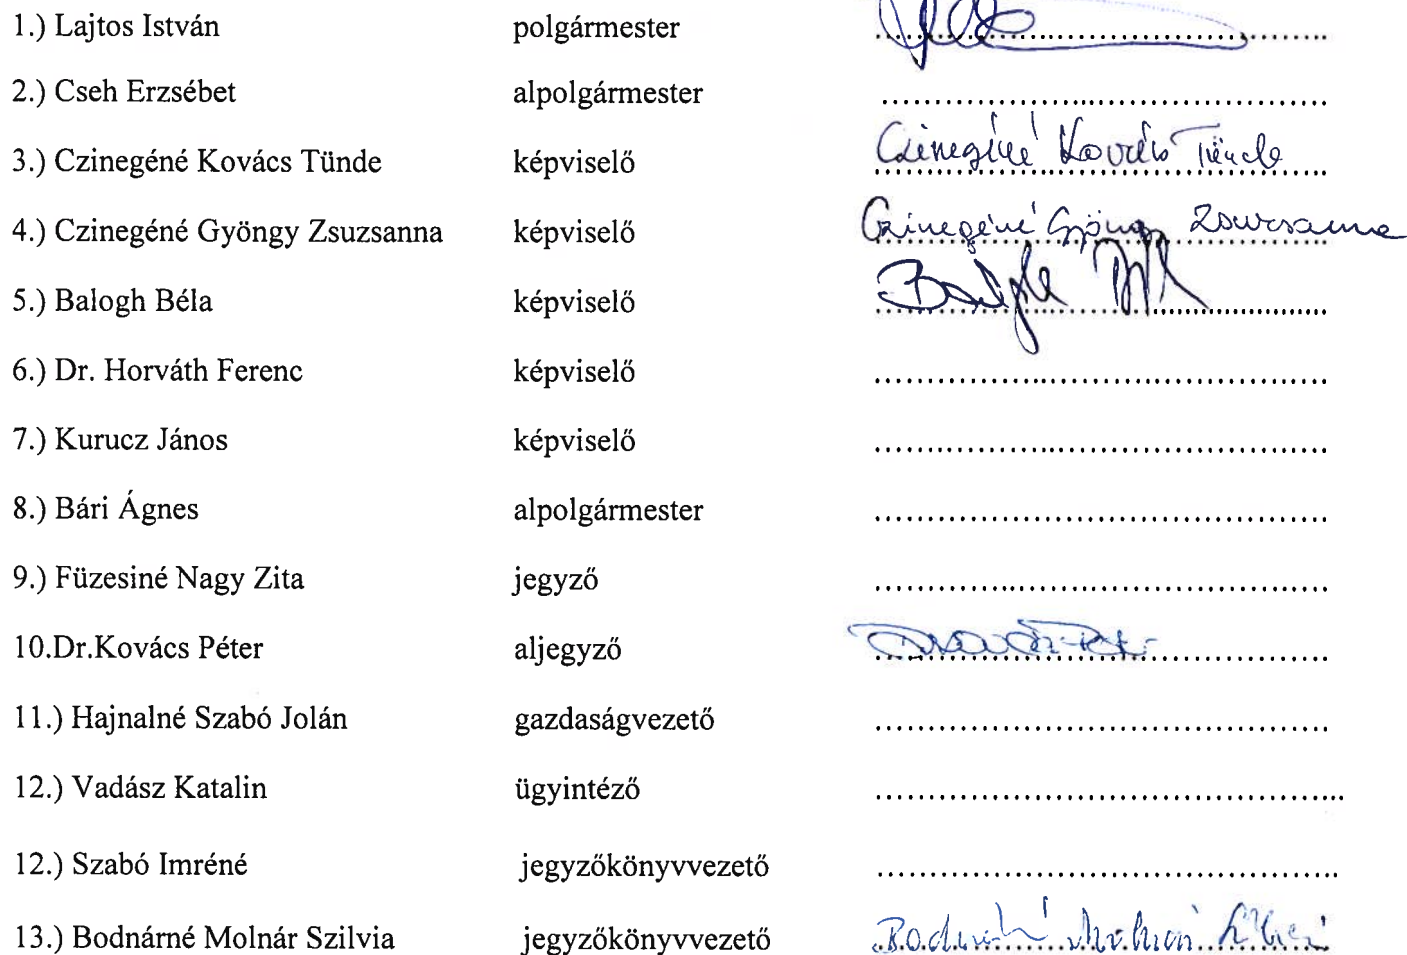 1.) Lajtos István polgármester ..........
2.) Cseh Erzsébet alpolgármester ..........
3.) Czinegéné Kovács Tünde képviselő Czinegéné Kovács Tünde
4.) Czinegéné Gyöngy Zsuzsanna képviselő Czinegéné Gyöngy Zsuzsanna
5.) Balogh Béla képviselő Balogh Béla
6.) Dr. Horváth Ferenc képviselő ..........
7.) Kurucz János képviselő ..........
8.) Bári Ágnes alpolgármester ..........
9.) Füzesiné Nagy Zita jegyző ..........
10.Dr.Kovács Péter aljegyző ..........
11.) Hajnalné Szabó Jolán gazdaságvezető ..........
12.) Vadász Katalin ügyintéző ..........
12.) Szabó Imréné jegyzőkönyvvezető ..........
13.) Bodnárné Molnár Szilvia jegyzőkönyvvezető Bodnárné Molnár Szilvia